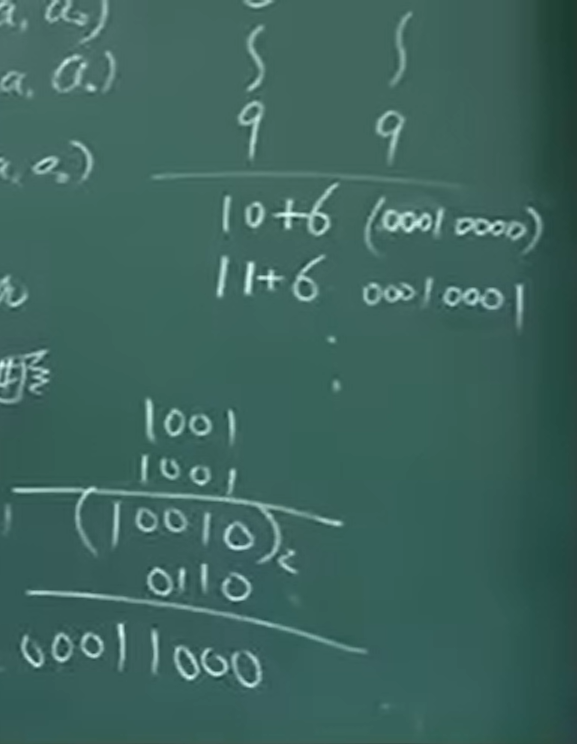 a, a₀)
a, a₀)
a, a₀)
9 9
10+6 (0001 0000)
11+6 0001 0001
1001
1001
(10010)₂
0110
00011000